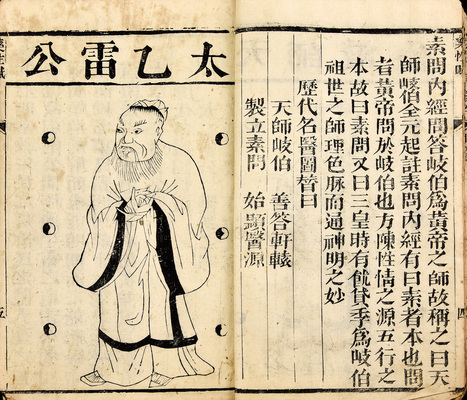 素問內經問答岐伯爲黃帝之師故稱之曰天
師岐伯全元起註素問內經有曰素者本也問
者黃帝問於岐伯也方陳性情之源五行之
本故曰素問又曰三皇時有僦貸季爲岐伯
祖世之師理色脉而通神明之妙
歷代名醫圖贊曰
天師岐伯　善答軒轅
製立素問　始顯醫源
太乙雷公
五